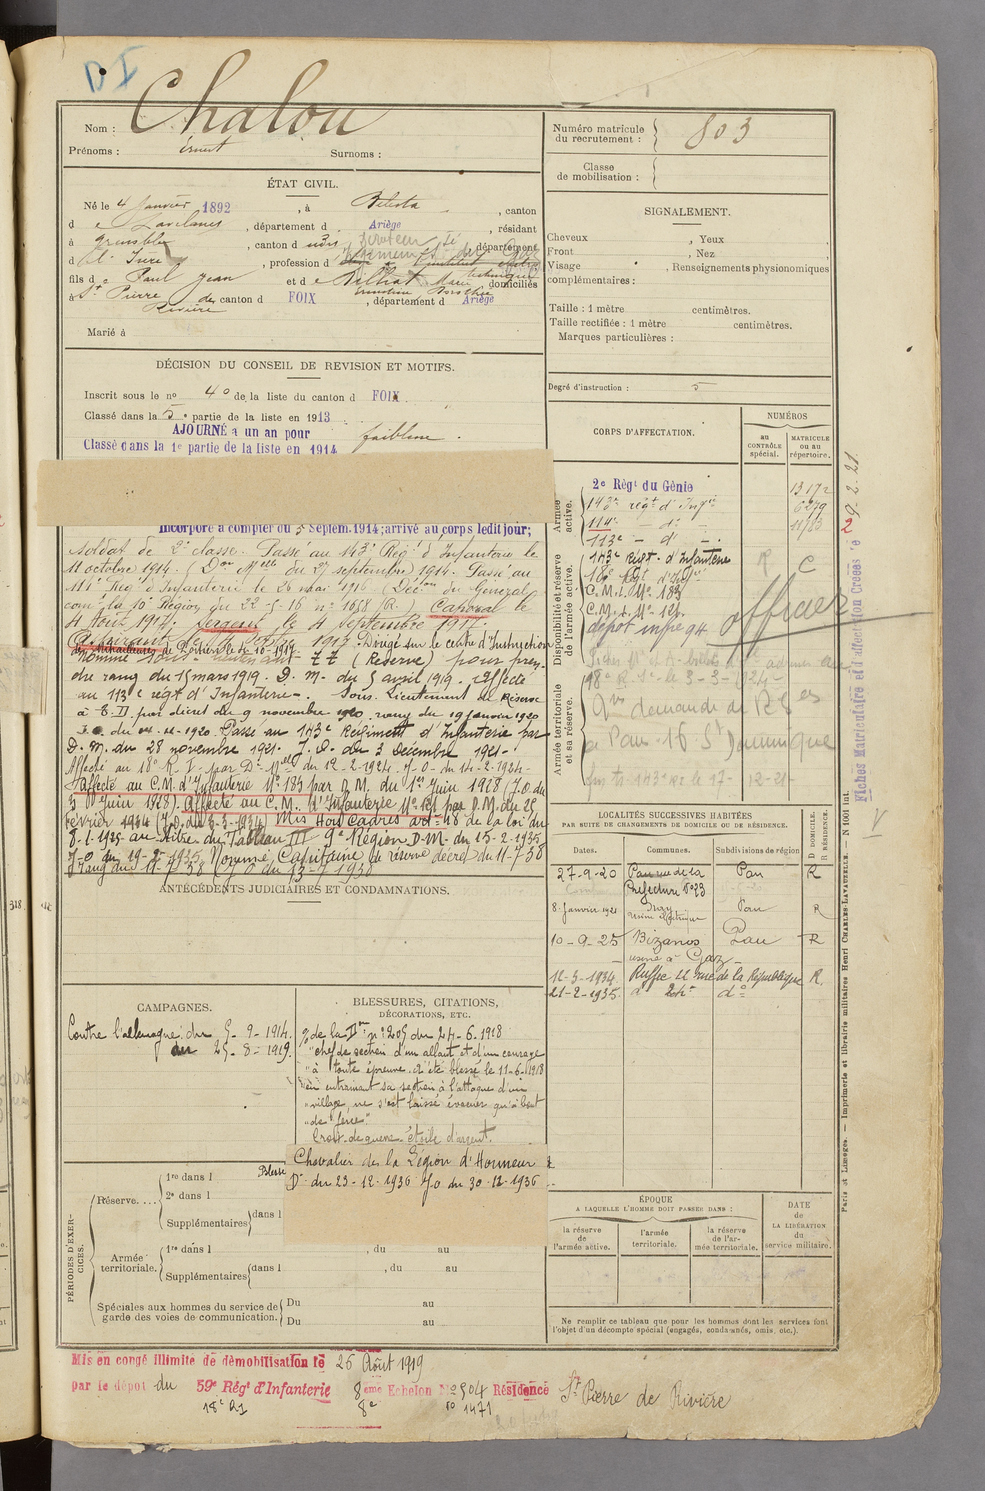 D I
Nom : Chalou
Prénoms : Ernest Surnoms :
Numéro matricule du recrutement : 803
Classe de mobilisation :
ÉTAT CIVIL.
Né le 4 Janvier 1892, à Belesta, canton
d e Lavelanet, département d Ariège, résidant
à Grenoble, canton d , département
d l'Isère, profession d
fils de Paul Jean et de domiciliés
à St Pierre de Rivière canton d FOIX, département d Ariège
Marié à
SIGNALEMENT.
Cheveux , Yeux
Front , Nez
Visage , Renseignements physionomiques
complémentaires :
Taille : 1 mètre centimètres.
Taille rectifiée : 1 mètre centimètres.
Marques particulières :
Degré d'instruction : 5
DÉCISION DU CONSEIL DE REVISION ET MOTIFS.
Inscrit sous le no 4 de la liste du canton d FOIX
Classé dans la 5e partie de la liste en 1913
AJOURNÉ à un an pour faiblesse.
Classé dans la 1e partie de la liste en 1914
Incorporé à compter du 5 Septem. 1914; arrivé au corps ledit jour;
soldat de 2e classe. Passé au 143e Rég' d'Infanterie le
11 octobre 1914. (Don Melle du 27 septembre 1914. Passé au
114e Rég' d'Infanterie le 26 mai 1916 (Déc.on du Général
comt la 10e Région du 22-5-16 no 1058 (R.) Caporal le
4 Août 1917. Sergent le 4 septembre 1917.
Aspirant le octobre 1917. Dirigé sur le centre d'Instruction
de Mitrailleuses de Poitiers le 10-1919
Nommé sous-lieutenant T.T (Réserve) pour pren-
dre rang du 15 mars 1919. D. M. du 5 avril 1919. Affecté
au 113e régt d'Infanterie. Sous-Lieutenant de Réserve
à T.D. par décret du 9 novembre 1920 rang du 19 janvier 1920
J.O. du 1920 Passé au 143e Régiment d'Infanterie par
D.M. du 28 novembre 1921. J.O. du 3 Décembre 1921-
Affecté au 18e R.I. par D. Melle du 12-2-1924. J-O- du 14-2-1924-
Affecté au C.M. d'Infanterie No 183 par D.M. du 1er Juin 1928 (J.O. du
3 Juin 1928). Affecté au C.M. d'Infanterie No 121 par D.M. du 25
février 1934 (J.O. du 3-3-1934) Mis Hors Cadres art. 48 de la loi du
8-1-1925 au titre du Tableau III 9e Région D.M. du 15-2-1935
J-O du 19-2-1935. Nommé Capitaine de réserve décret du 11-7-38
Rang du 11-7-38 (J.O du 13-7-1938
CORPS D'AFFECTATION.
NUMÉROS
AU CONTRÔLE spécial.
MATRICULE OU AU répertoire.
Armée active.
2e Régt du Génie 13172
143e régt d'Infie 6279
114e - do - 11/83
113e - do -
Disponibilité et réserve de l'armée active.
143e Régt d'Infanterie R C
18e Régt d'Infie
C.M.I. No 183
C.M.I. No 121.
dépot infie 94
officier
Armée territoriale et sa réserve.
18e R.I. le 3-3-1924
demande de RG
à Pau 16 St Dominique
143e RI le 17-12-21
Fiches Matriculaire et d'affection Créées le 9-2-21
LOCALITÉS SUCCESSIVES HABITÉES
PAR SUITE DE CHANGEMENTS DE DOMICILE OU DE RÉSIDENCE.
Dates. Communes. Subdivisions de région
D DOMICILE. R RÉSIDENCE.
27-9-20 Pau rue de la Préfecture No 23 Pau R
8-Janvier 1921 Nay usine électrique Pau R
10-9-25 Bizanos usine à Gaz Pau R
12-3-1934 Ruffec 11 rue de la République R.
21-2-1935 do do
ANTÉCÉDENTS JUDICIAIRES ET CONDAMNATIONS.
CAMPAGNES.
Contre l'allemagne du 5-9-1914.
au 25-8-1919.
BLESSURES, CITATIONS,
DÉCORATIONS, ETC.
O/ de la Don no 205 du 24-6-1918
"chef de section d'un allant et d'un courage
"à toute épreuve. A été blessé le 11-6-1918
"en entrainant sa section à l'attaque d'un
"village, ne s'est laissé évacuer qu'à bout
"de force"
Croix de guerre étoile d'argent.
Chevalier de la Légion d'Honneur
Dt du 23-12-1936 JO du 30-12-1936
Blessé
PÉRIODES D'EXERCICES.
Réserve....
1re dans l
2e dans l
Supplémentaires dans l
Armée territoriale.
1re dans l , du au
Supplémentaires dans l , du au
Spéciales aux hommes du service de garde des voies de communication.
Du au
Du au
ÉPOQUE
A LAQUELLE L'HOMME DOIT PASSER DANS :
la réserve de l'armée active.
l'armée territoriale.
la réserve de l'armée territoriale.
DATE de LA LIBÉRATION du service militaire.
Ne remplir ce tableau que pour les hommes dont les services font
l'objet d'un décompte spécial (engagés, condamnés, omis, etc.).
Paris et Limoges. — Imprimerie et librairie militaires Henri CHARLES-LAVAUZELLE. — N 1001 int.
Mis en congé illimité de démobilisation le 25 Août 1919
par le dépôt du 59e Régt d'Infanterie 8eme Echelon No 504 Résidence St Pierre de Rivière
18e RI 8e no 1471